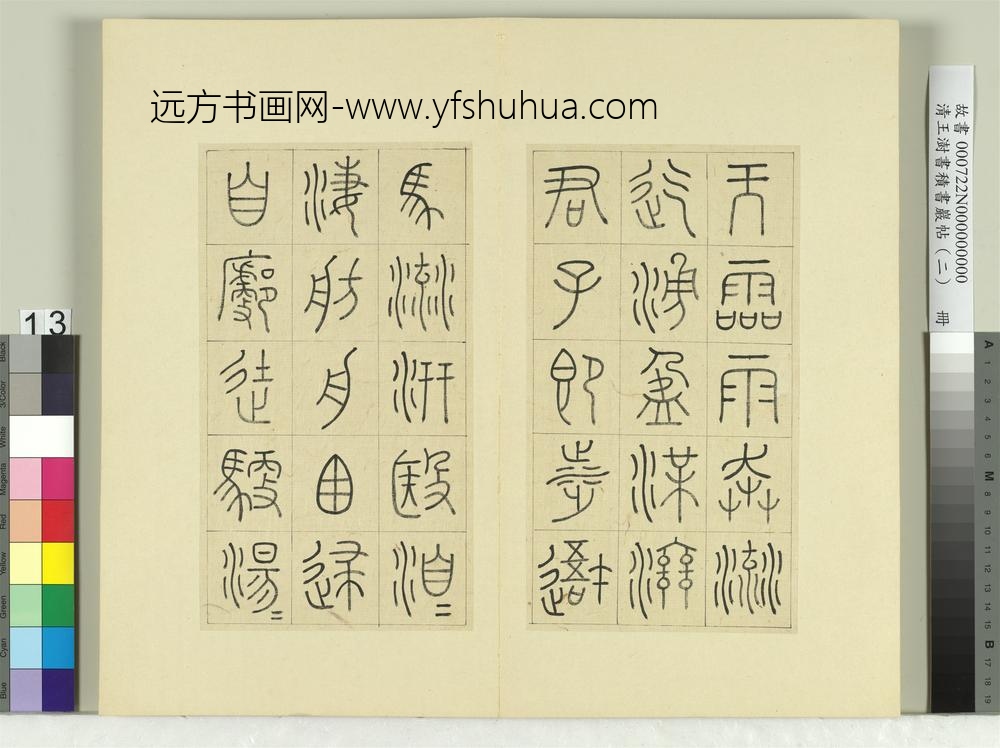 远方书画网-www.yfshuhua.com
天霝雨奔流
迄湧盈渫
君子即步
馬流汧殹洎〓
淒舫舟逮
自廊徒馭湯〓
故書 000722N000000000
清王澍書積書巖帖(二) 冊
13
Black
3/Color
White
Magenta
Red
Yellow
Green
Cyan
Blue
A 1 2 3 4 5 6 M 8 9 10 11 12 13 14 15 B 17 18 19